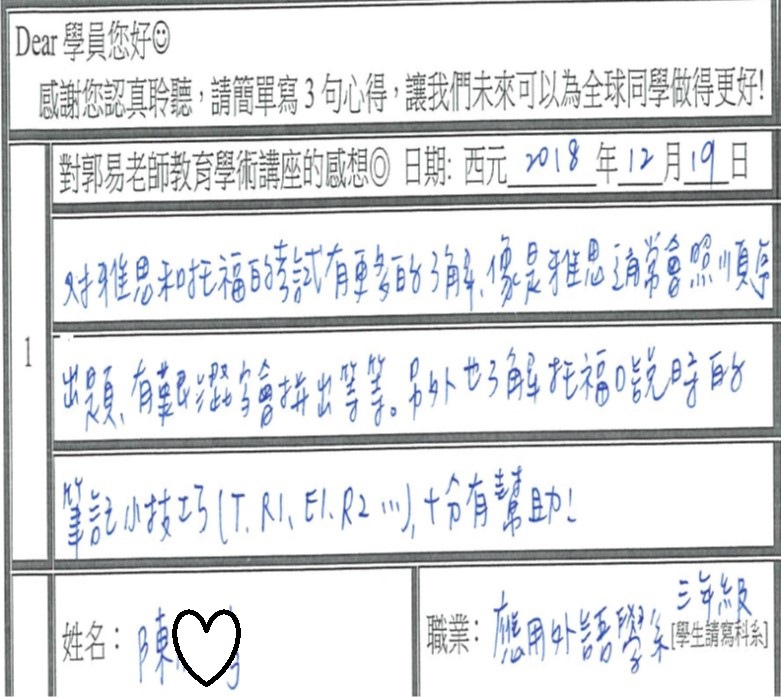 Dear 學員您好☺
感謝您認真聆聽，請簡單寫 3 句心得，讓我們未來可以為全球同學做得更好!
對郭易老師教育學術講座的感想◎ 日期: 西元 2018 年 12 月 19 日
1
對雅思和托福的考試有更多的了解、像是雅思通常會照順序
出題、有艱澀字會拼出等等。另外也了解托福口說時的
筆記小技巧(T. R1、E1. R2 …), 十分有幫助!
姓名： 陳
職業： 應用外語學系 三年級
[學生請寫科系]